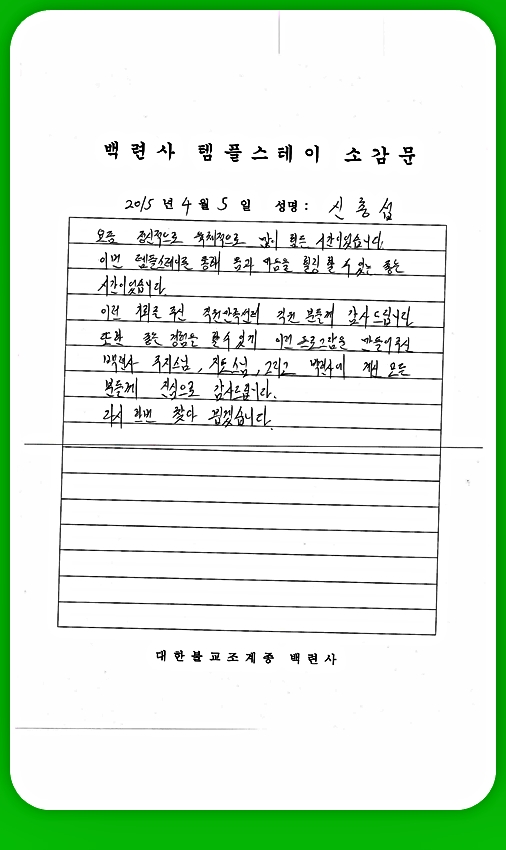 백련사 템플스테이 소감문
2015 년 4 월 5 일 성명 : 신종섭
요즘 정신적으로 육체적으로 많이 힘든 시간이었습니다.
이번 템플스테이를 통해 몸과 마음을 힐링 할 수 있는 좋은
시간이었습니다.
이런 기회를 주신 직원만족센터 직원 분들께 감사드립니다.
또한 좋은 경험을 할 수 있게 이런 프로그램을 만들어주신
백련사 주지스님, 지도스님, 그리고 백련사에 계신 모든
분들께 진심으로 감사드립니다.
다시 한번 찾아 뵙겠습니다.
대한불교조계종 백련사